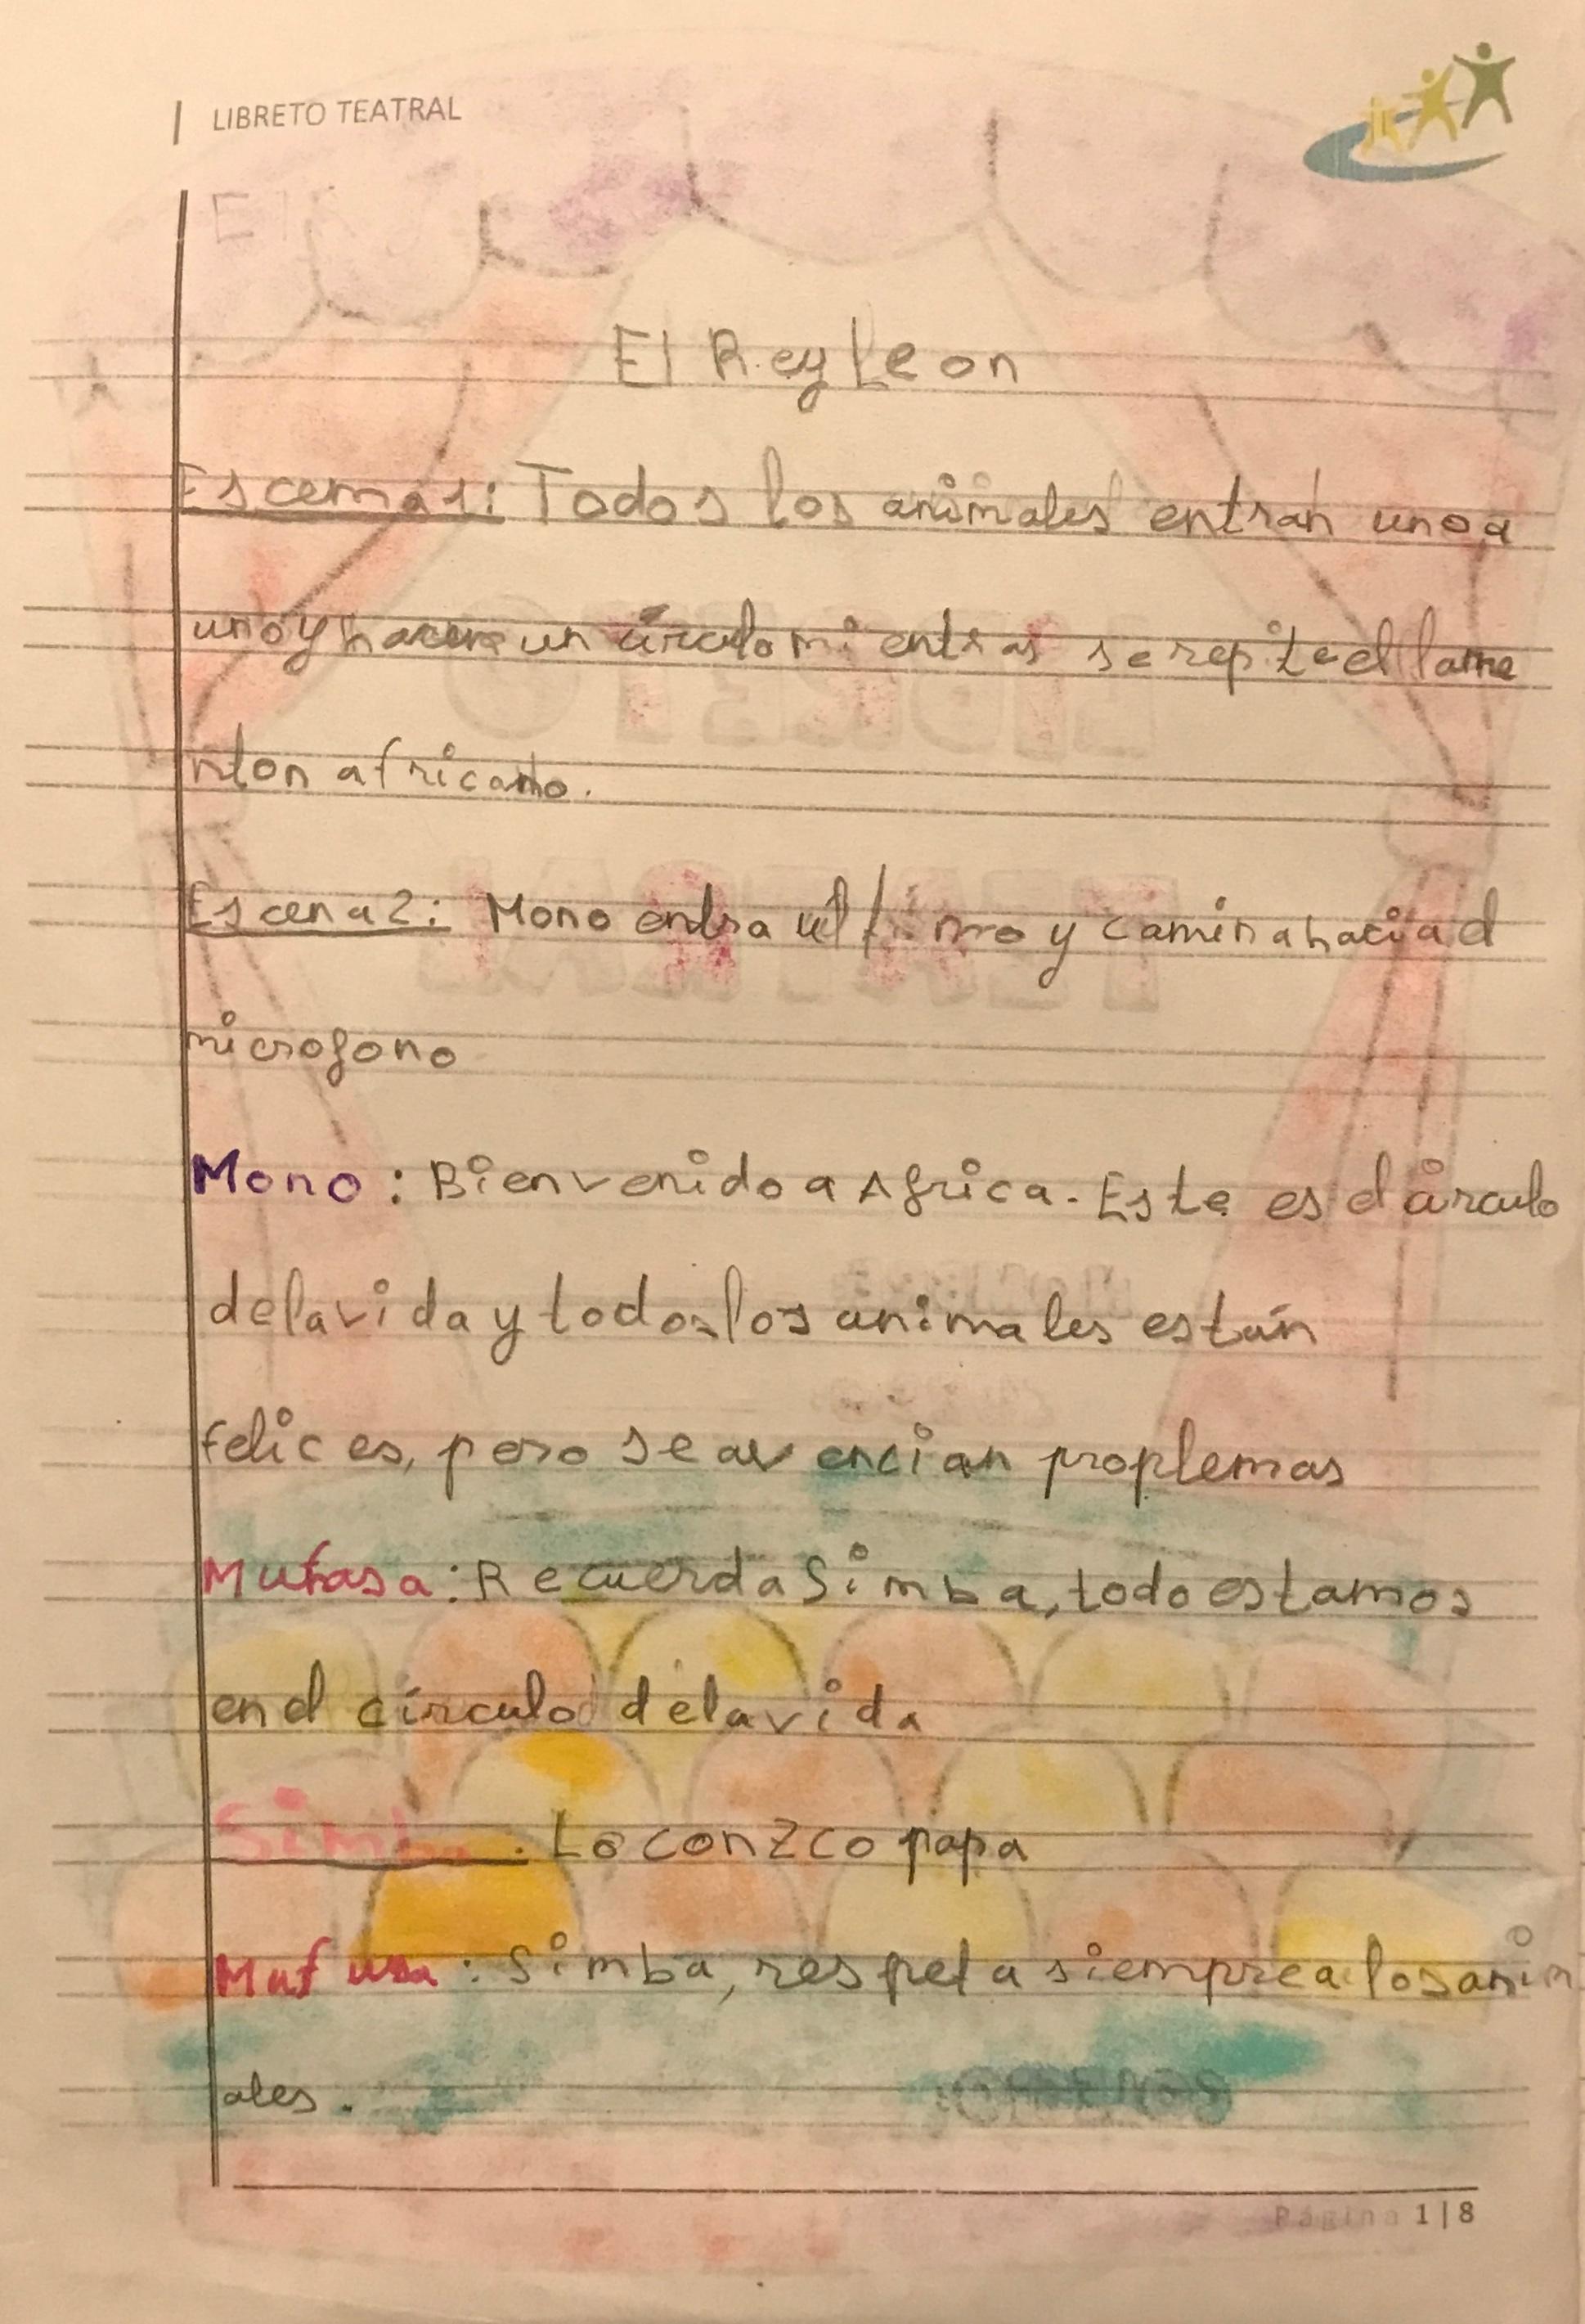 LIBRETO TEATRAL
El Rey Leon
Escema1: Todos los animales entran uno a
uno y hacen un círculo mientras se repite el lame
nton africano.
Escena2: Mono entra último y camina hacia el
microfono
Mono: Bienvenido a Africa. Este es el círculo
de la vida y todos los animales están
felices, pero se avencian proplemas
Mufasa: Recuerda Simba, todo estamos
en el círculo de la vida
Simba. Lo conzco papa
Mufasa: Simba, respeta siempre a los anim
ales.
Página 1|8